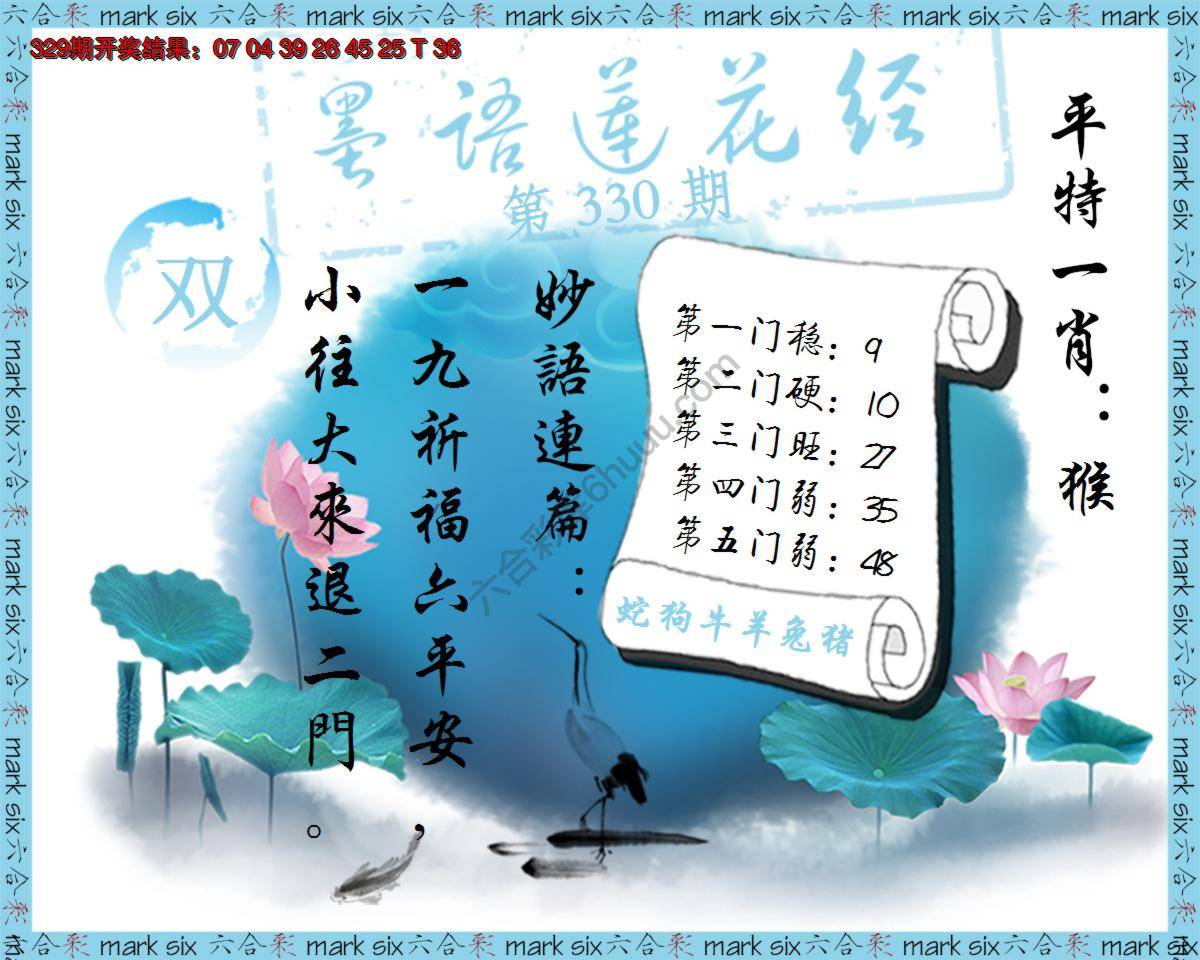 六合彩 mark six 六合彩 mark six 六合彩 mark six 六合彩 mark six 六合彩 mark six 六合彩 mark six
329期开奖结果：07 04 39 26 45 25 T 36
墨語莲花经
第 330 期
双
平特一肖：猴
妙語連篇：
一九祈福六平安，
小往大來退二門。
第一门稳：9
第二门硬：10
第三门旺：27
第四门弱：35
第五门弱：48
蛇狗牛羊兔猪
六合彩 mark six 六合彩 mark six 六合彩 mark six 六合彩 mark six 六合彩 mark six 六合彩 mark six